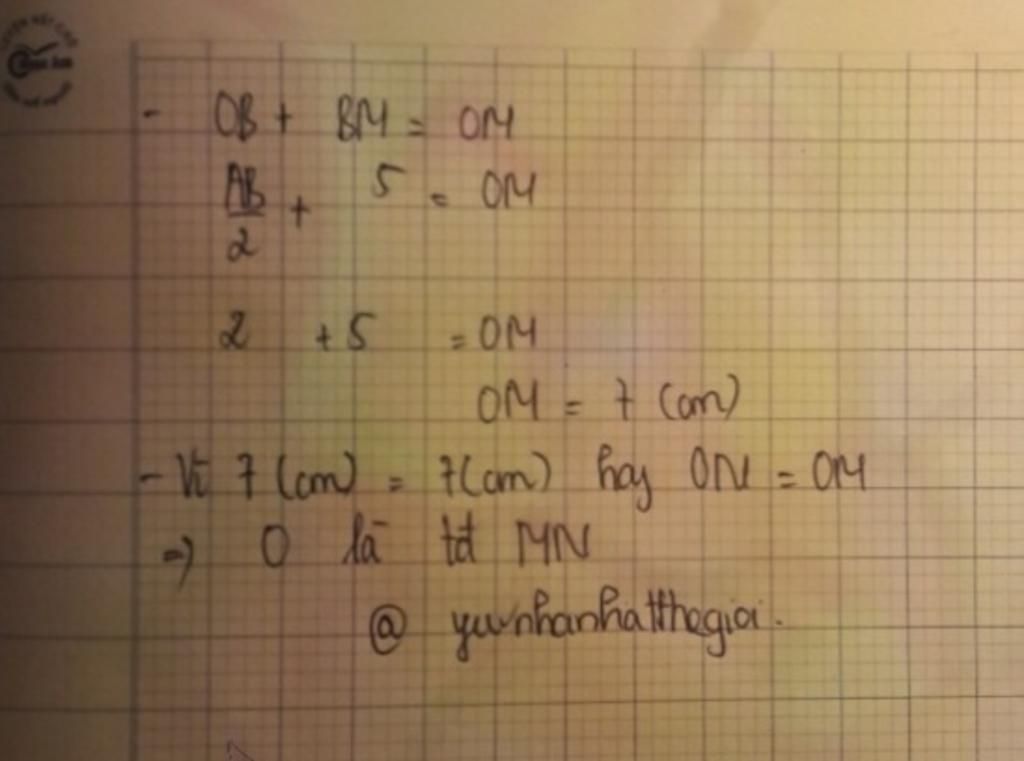 - OB + BM = OM
AB/2 + 5 = OM
2 + 5 = OM
OM = 7 (cm)
- Vì 7 (cm) = 7(cm) hay ON = OM
=> O là tđ MN
@ yuunhanhatthegioi.